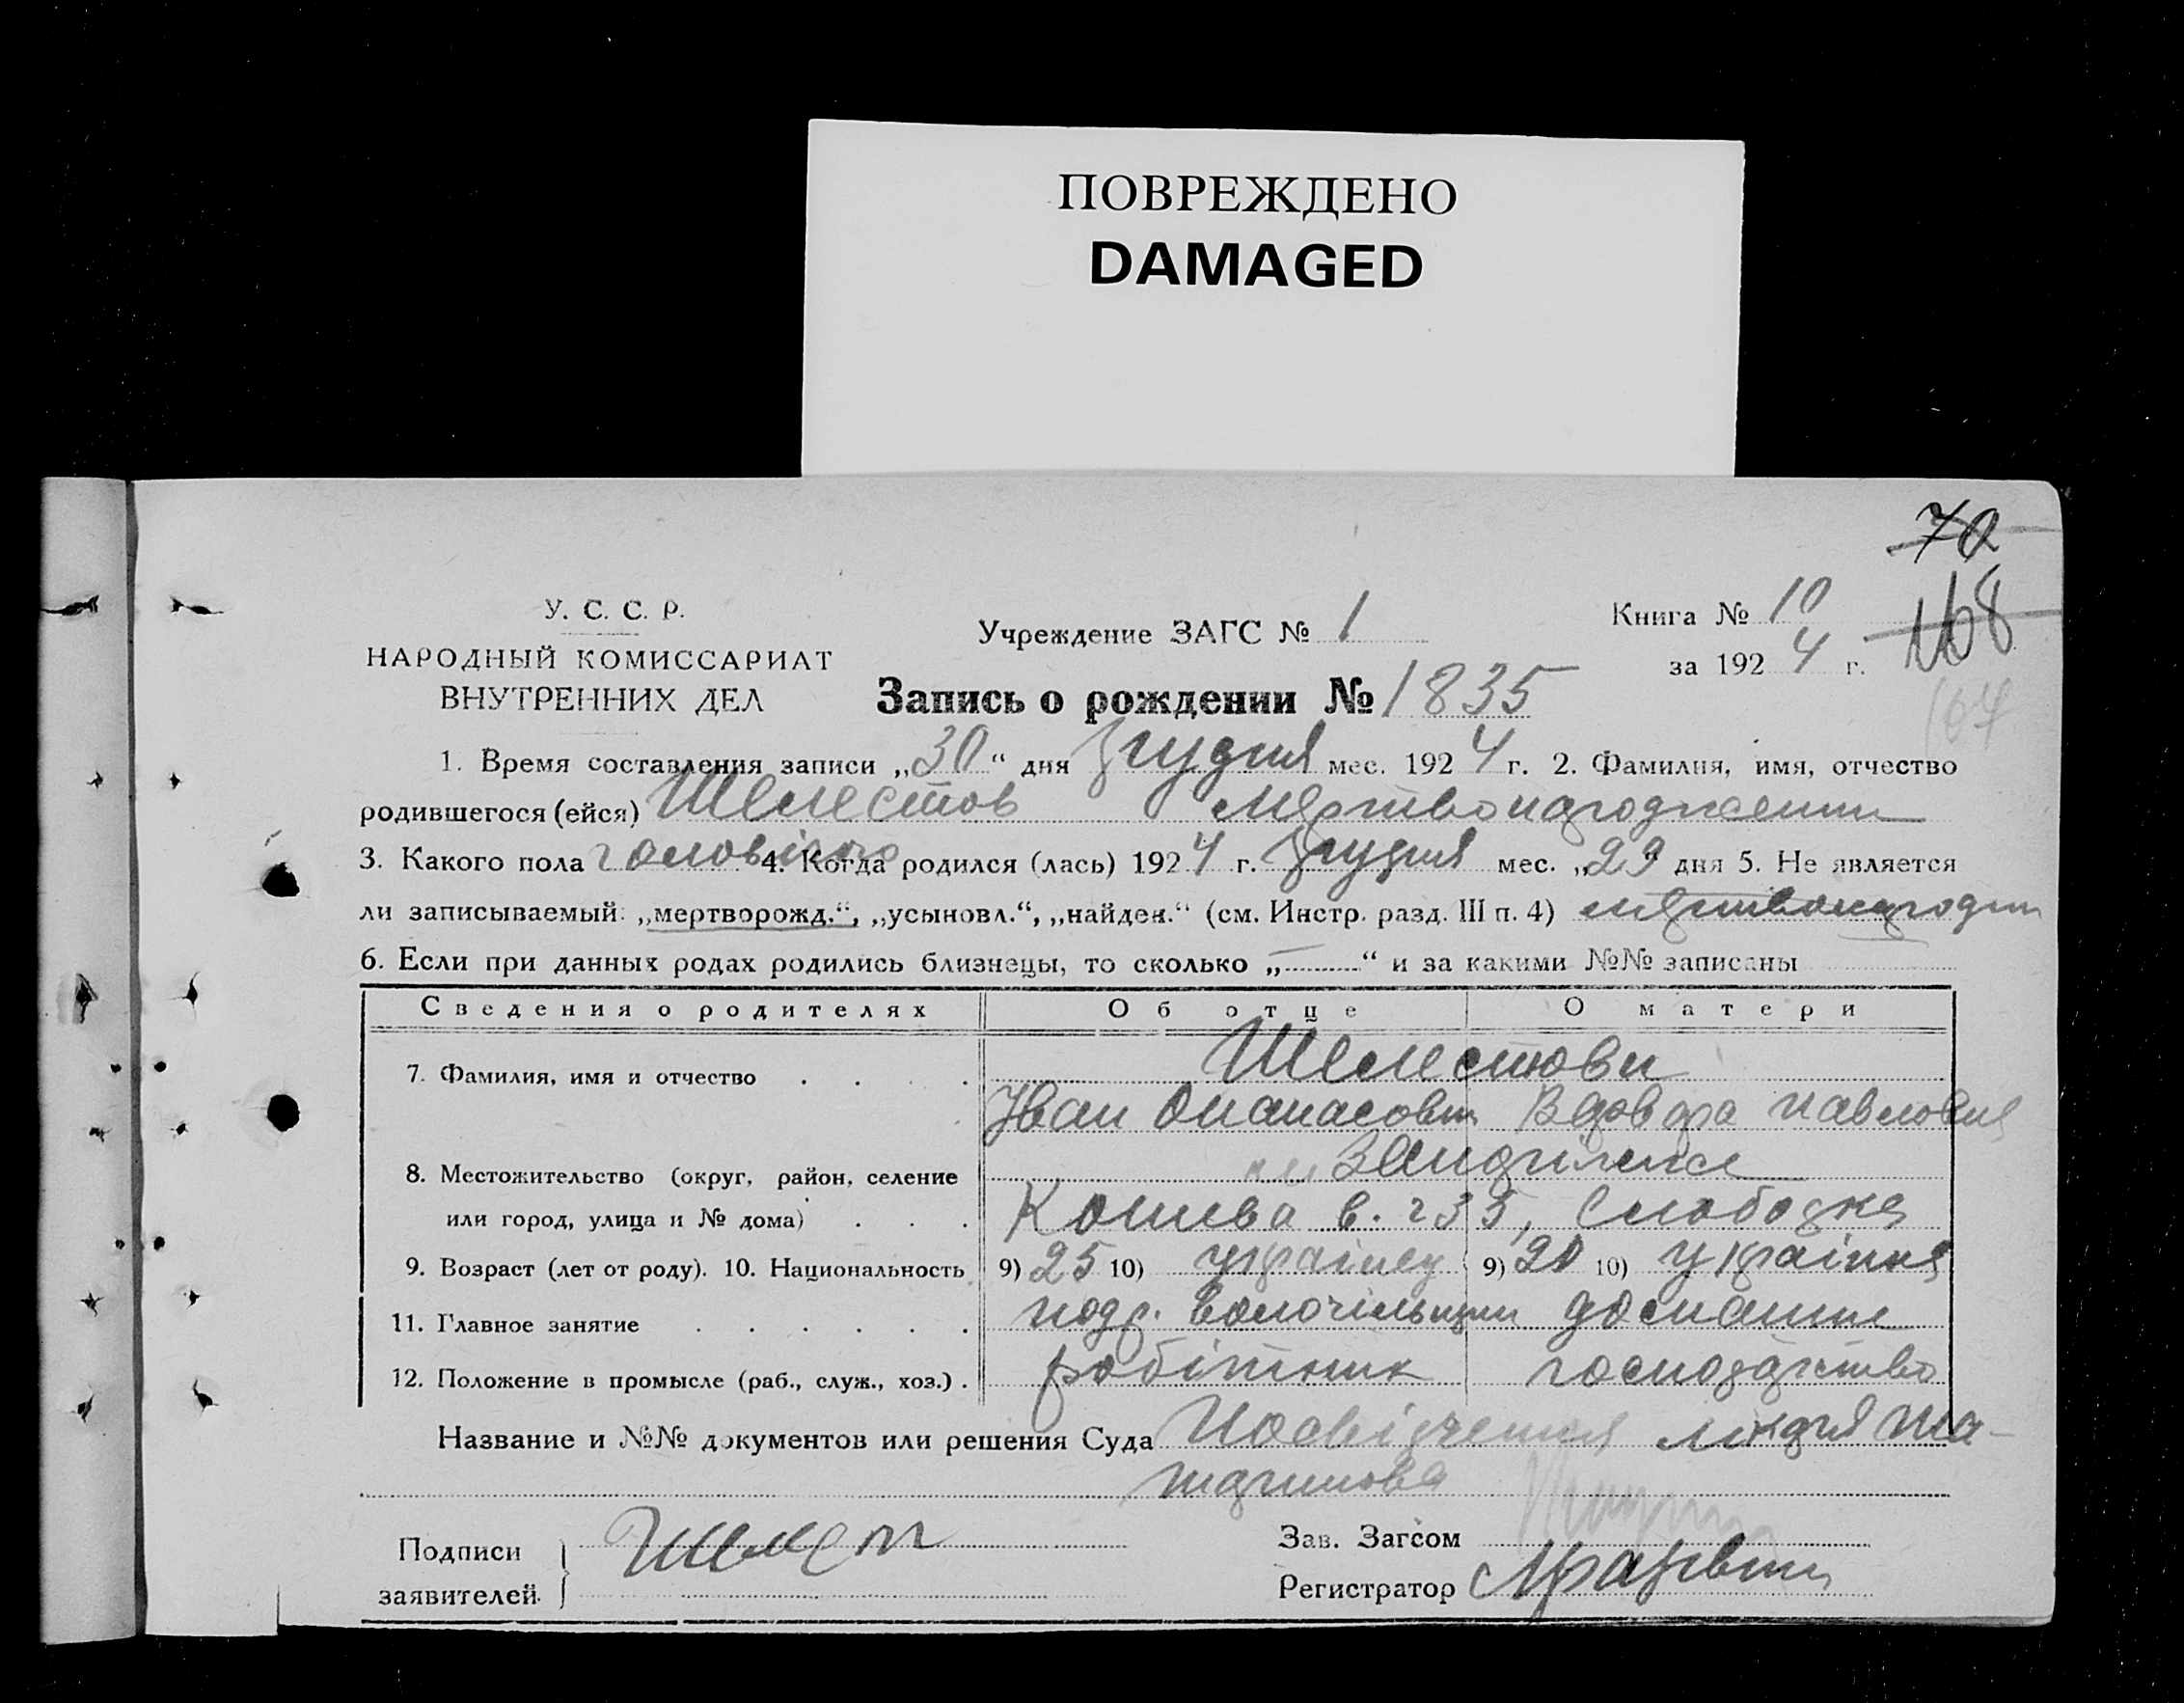 ПОВРЕЖДЕНО
DAMAGED
70
168
164
У. С. С. Р.
НАРОДНЫЙ КОМИССАРИАТ
ВНУТРЕННИХ ДЕЛ
Учреждение ЗАГС № 1
Книга № 10
за 1924 г.
Запись о рождении № 1835
1. Время составления записи „30“ дня грудня мес. 1924 г. 2. Фамилия, имя, отчество
родившегося (ейся) Шелестов мертвонароджении
3. Какого пола чоловічого 4. Когда родился (лась) 1924 г. грудня мес. „29“ дня 5. Не является
ли записываемый: „мертворожд.“, „усыновл.“, „найден.“ (см. Инстр. разд. III п. 4)
6. Если при данных родах родились близнецы, то сколько „—“ и за какими №№ записаны
Сведения о родителях Об отце О матери
7. Фамилия, имя и отчество Шелестови
Иван Опанасович павловна
8. Местожительство (округ, район, селение
или город, улица и № дома) в. 233, Слободка
9. Возраст (лет от роду). 10. Национальность 9) 25 10) українец 9) 20 10) українка
11. Главное занятие домашне
12. Положение в промысле (раб., служ., хоз.) робітник господарство
Название и №№ документов или решения Суда Посвідчення лікаря
Подписи
заявителей Шелест
Зав. Загсом
Регистратор